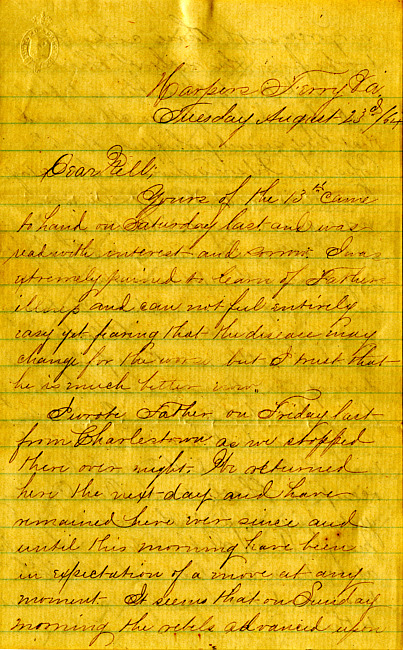 Harpers Ferry Va
Tuesday August 23d/64
Dear Nell;
Yours of the 13th came
to hand on Saturday last and was
read with interest and sorrow. I was
extremely pained to learn of Fathers
illness and can not feel entirely
easy yet fearing that the disease may
change for the worse but I trust that
he is much better now.
I wrote Father on Friday last
from Charlestown as we stopped
there over night. We returned
here the next day and have
remained here ever since and
until this morning have been
in expectation of a move at any
moment. It seems that on Sunday
morning the rebels advanced upon